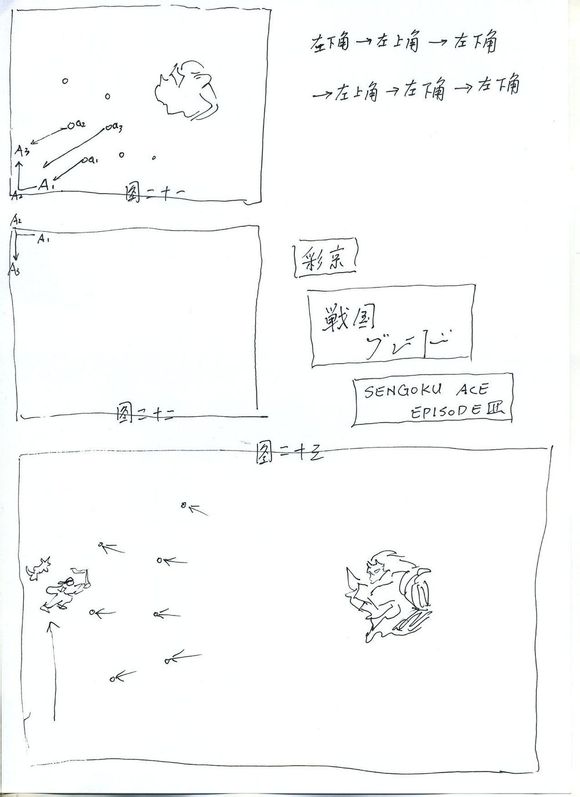 左下角→左上角→左下角
→左上角→左下角→左下角
a2
a3
a1
A3
A2
A1
图二十一
A2
A1
A3
图二十二
彩京
戦国
ブレード
SENGOKU ACE
EPISODE III
图二十三